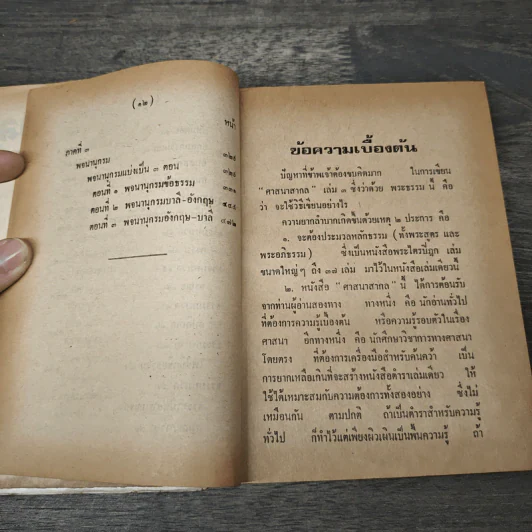 (๑๒)
หน้า
ภาคที่ ๓
พจนานุกรม ๓๒๙
พจนานุกรมแบ่งเป็น ๓ ตอน
ตอนที่ ๑ พจนานุกรมข้อธรรม ๓๓๑
ตอนที่ ๒ พจนานุกรมบาลี-อังกฤษ
ตอนที่ ๓ พจนานุกรมอังกฤษ-บาลี ๔๗๒
ข้อความเบื้องต้น
ปัญหาที่ข้าพเจ้าต้องขบคิดมาก ในการเขียน
“ศาสนาสากล” เล่ม ๓ ซึ่งว่าด้วย พระธรรม นี้ คือ
ว่า จะใช้วิธีเขียนอย่างไร
ความยากลำบากเกิดขึ้นด้วยเหตุ ๒ ประการ คือ
๑. จะต้องประมวลหลักธรรม (ทั้งพระสูตร และ
พระอภิธรรม) ซึ่งเป็นหนังสือพระไตรปิฎก เล่ม
ขนาดใหญ่ๆ ถึง ๓๗ เล่ม มาไว้ในหนังสือเล่มเดียวนี้
๒. หนังสือ “ศาสนาสากล” นี้ ได้การต้อนรับ
จากท่านผู้อ่านสองทาง ทางหนึ่ง คือ นักอ่านทั่วไป
ที่ต้องการความรู้เบื้องต้น หรือความรู้รอบตัวในเรื่อง
ศาสนา อีกทางหนึ่ง คือ นักศึกษาวิชาการทางศาสนา
โดยตรง ที่ต้องการเครื่องมือสำหรับค้นคว้า เป็น
การยากเหลือเกินที่จะสร้างหนังสือตำราเล่มเดียว ให้
ใช้ได้เหมาะสมกับความต้องการทั้งสองอย่าง ซึ่งไม่
เหมือนกัน ตามปกติ ถ้าเป็นตำราสำหรับความรู้
ทั่วไป ก็ทำไว้แต่เพียงผิวเผินเป็นพื้นความรู้ ถ้า